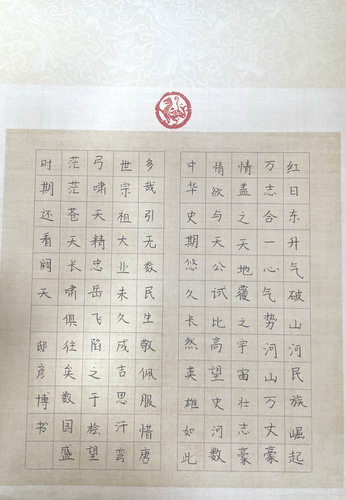 红日东升气破山河民族崛起
万志合一心气势河山万丈豪
情盖之天地覆之宇宙壮志豪
情欲与天公试比高望史河数
中华史期悠久长然英雄如此
多我引无数民生敬佩服惜唐
世宗祖大业未久成吉思汗弯
弓啸天精忠岳飞陷之于桧望
茫茫苍天长啸俱往矣数国盛
时期还看天
邸彦博书